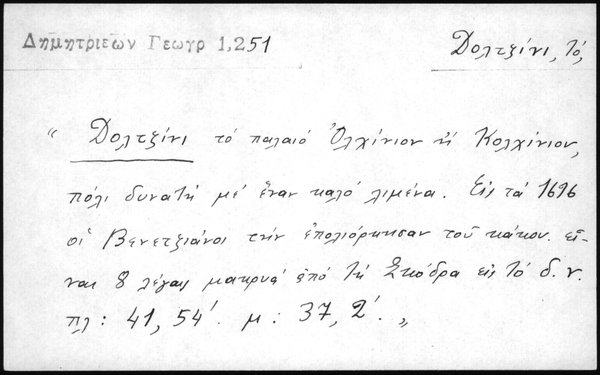 Δημητριεών Γεωγρ 1,251
Δολτζίνι, τό,
“ Δολτζίνι τό παλαιό Ὀλχίνιον ἤ Κολχίνιον,
πόλι δυνατή μέ ἕναν καλό λιμένα. Εἰς τά 1696
οἱ Βενετζιάνοι τήν ἐπολιόρκησαν τοῦ κάκου. εἶ-
ναι 8 λέγαις μακρυά ἀπό τή Σκόδρα εἰς τό δ. ν.
πλ: 41, 54′. μ: 37, 2′. „